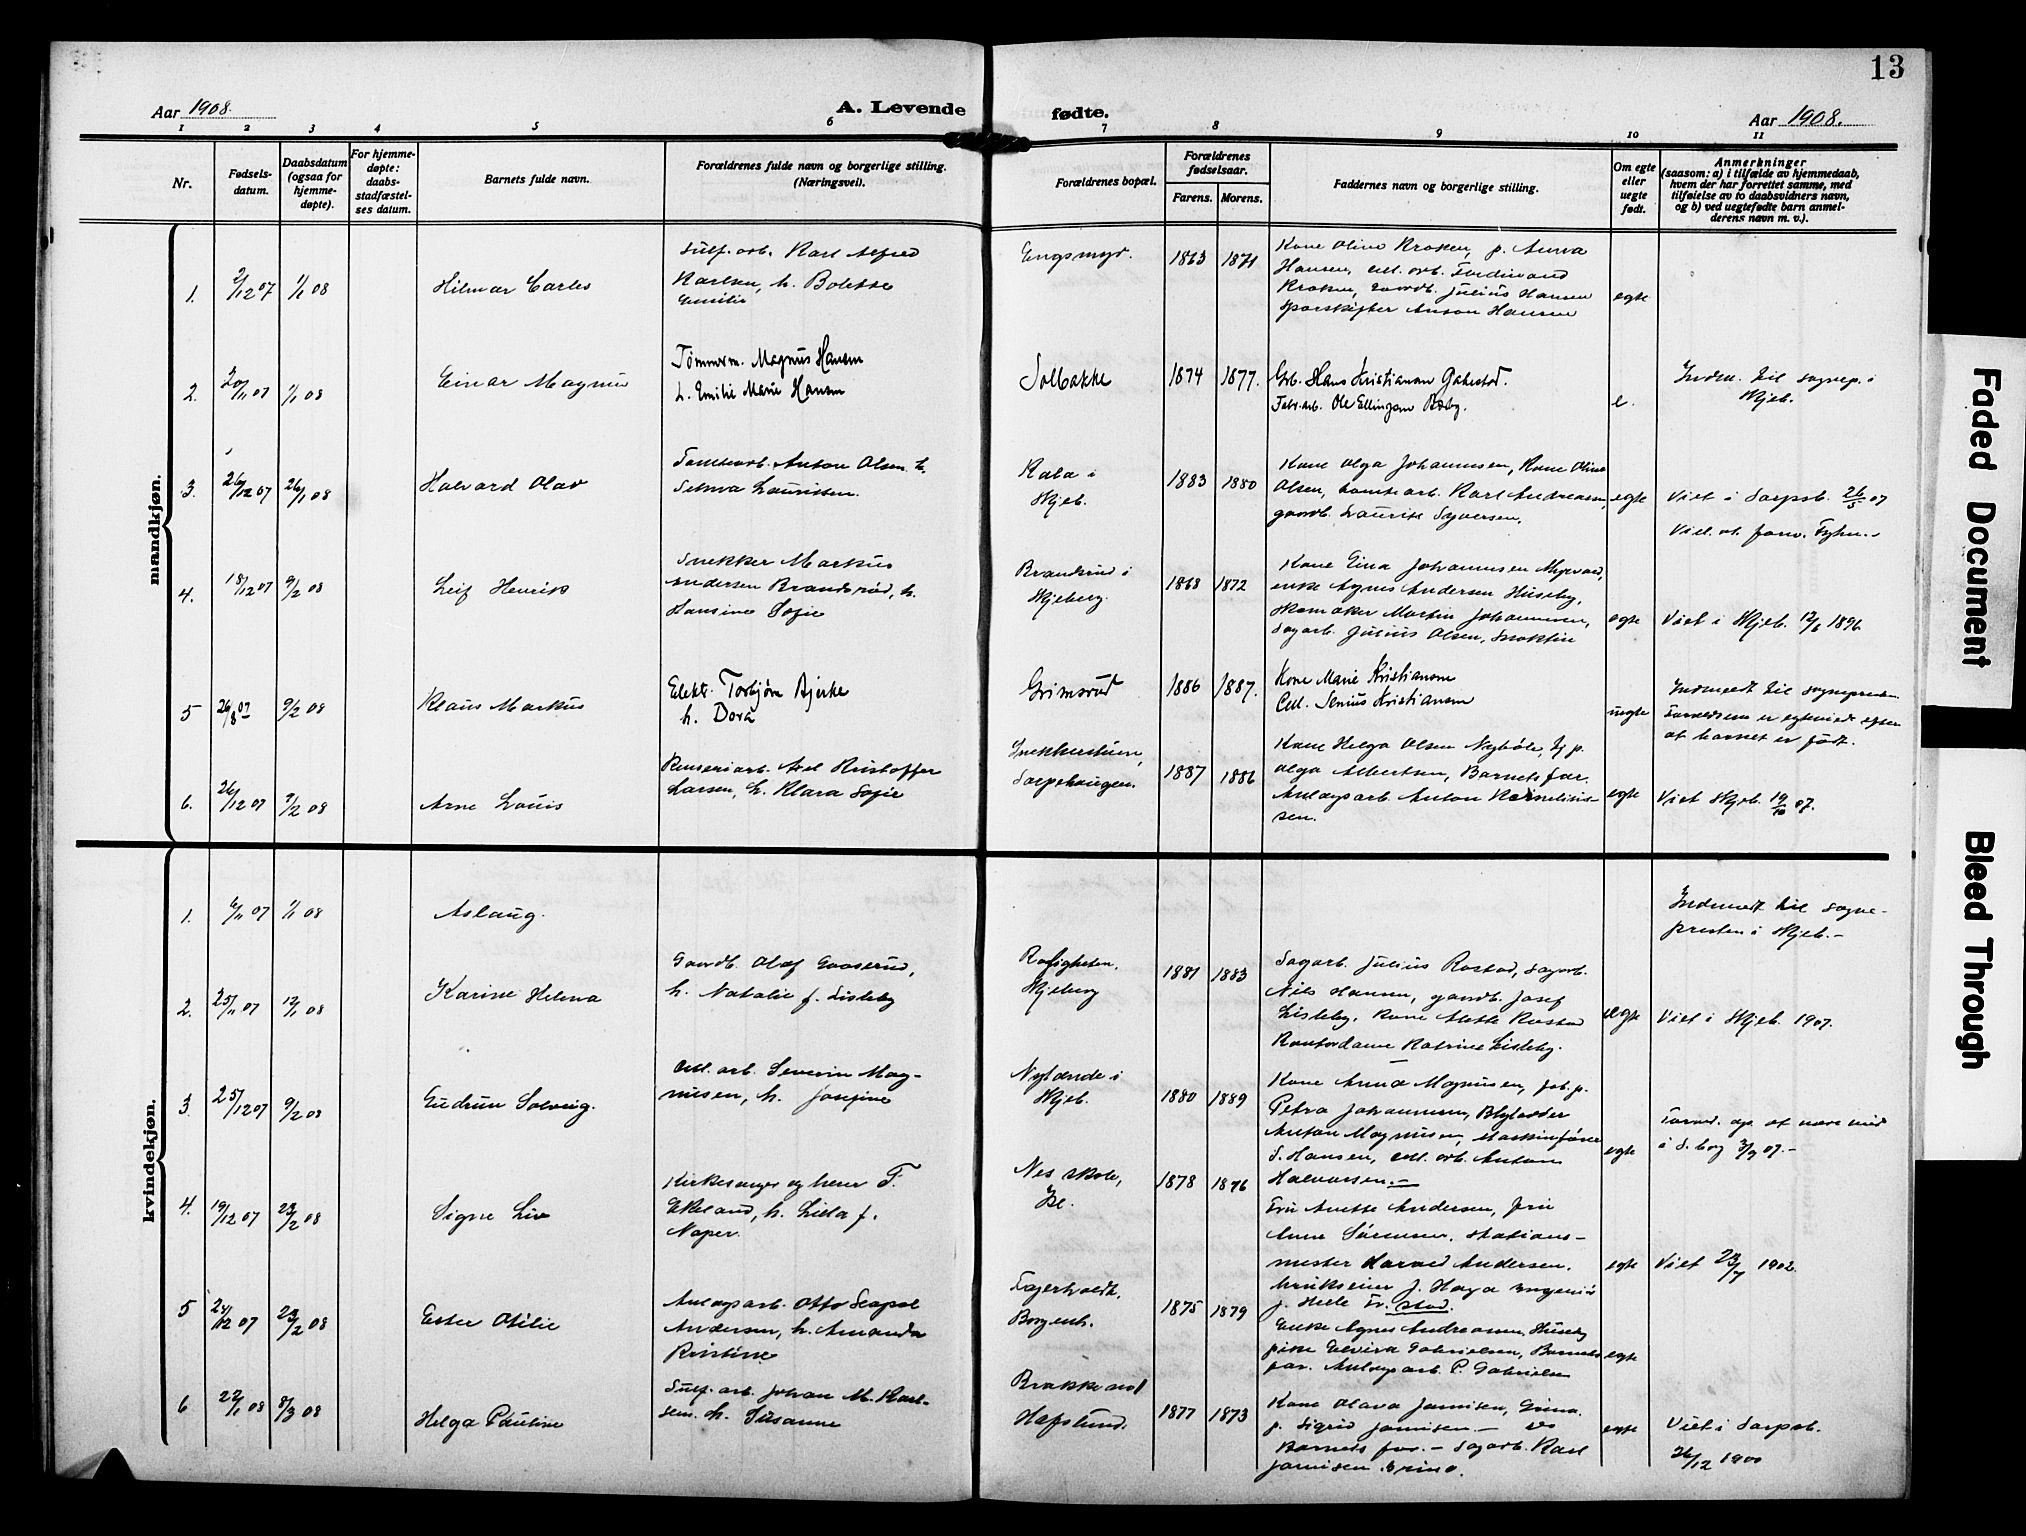 13
Aar 1908.
A. Levende fødte.
Aar 1908.
1 2 3 4 5 6 7 8 9 10 11
Nr.
Fødsels-
datum.
Daabsdatum
(ogsaa for
hjemme-
døpte).
For hjemme-
døpte:
daabs-
stadfæstel-
ses datum.
Barnets fulde navn.
Forældrenes fulde navn og borgerlige stilling.
(Næringsvei).
Forældrenes bopæl.
Forældrenes
fødselsaar.
Farens. Morens.
Faddernes navn og borgerlige stilling.
Om egte
eller
uegte
født.
Anmerkninger
(saasom: a) i tilfælde av hjemmedaab,
hvem der har forrettet samme, med
tilføielse av to daabsvidners navn,
og b) ved uegtefødte barn anmel-
derens navn m. v.).
mandkjøn.
1. 2/12 07 1/1 08 Hilmar Carles
Sulf. arb. Karl Alfred
Karlsen, h. Bolette
Emilie
Engsmyr. 1863 1871
Kone Oline Kroken, p. Anna
Hansen, cell. arb. Ferdinand
Kroken, Julius Hansen
Sporskifter Anton Hansen
egte
2. 20/11 07 1/1 08 Einar Magnus
Tømmerm. Magnus Hansen
h. Emilie Marie Hansen
Solbakke 1874 1877.
Grb. Hans Kristiansen
Fabr. arb. Ole Ellingsen
e.
Indm. til sognep. i
Skjeb.
3. 26/12 07 26/1 08 Halvard Olav
Tomtearb. Anton Olsen h.
Selma Lauritsen.
Kala i
Skjeb.
1883 1880
Kone Olga Johannesen, Kone Oline
Olsen, tomtearb. Karl Andreasen,
gaardb. Laurits Syversen.
egte
Viet i Sarpsb. 26/5 07
Viel. at forv.
4. 18/12 07 9/2 08 Leif Henrik
Snekker Markus
Andersen Brandsrød, h.
Hansine Sofie
Brandsrud i
Skjeberg.
1868 1872
Kone Eina Johannesen
enke Agnes Andersen Huseby,
skomaker Martin Johannesen,
Sagarb. Julius Olsen,
egte
Viet i Skjeb. 12/6 1896
5 26/8 07 9/2 08 Klaus Markus
Elektr. Torbjørn Bjerke
h. Dora
Grimsrud 1886 1887.
Kone Marie Kristiansen
Cell. Senius Kristiansen
uegte
Indmeldt til sogneprest
Forældrene er egteviet efter
at barnet er født.
6. 26/12 07 9/2 08 Arne Louis
Renseriarb. Axel Kristoffer
Larsen, h. Klara Sofie
Snekkerstuen,
Sarpehaugen.
1887 1886
Kone Helga Olsen
Olga Albertsen, Barnets far.
Anlægsarb. Anton Kornelius-
sen.
egte
Viet Skjeb. 19/10 07.
kvindekjøn.
1. 6/11 07 1/1 08 Aslaug.
Indmeldt til sogne-
presten i Skjeb.-
2. 25/11 07 12/1 08 Karine Helena
Gaardb. Olaf Gaaserud,
h. Natalie f. Lisleby
Roligheten,
Skjeberg
1881 1883
Sagarb. Julius Rostad, sagarb.
Nils Hansen, gaardb. Josef
Lisleby, Kone Mette Rostad
Kontordame Katrine Lisleby.
egte
Viet i Skjeb. 1907.
3. 25/12 07 9/2 08 Gudrun Solveig.
Cell. arb. Severin Mag-
nusen, h. Josefine
Nylænde i
Skjeb.
1880 1889
Kone Anna Magnusen, fab. p.
Petra Johannesen,
Anton Magnusen, Maskinfører
S. Hansen, cell. arb. Antom
Halvorsen.-
egte
Foræld. op. at være viet
i S.borg 3/9 07.-
4. 19/12 07 23/2 08 Signe Liv
Kirkesanger og lærer F.
Ekeland, h. Lilla f.
Naper.
Nes skole,
1878 1876
Fru Anette Andersen, fru
Anne Sørensen, stations-
mester Harald Andersen,
brukseier J. Haga ingeniør
J. Fr.stad.
egte
Viet 23/7 1902.
5 24/12 07 23/2 08 Ester Otilie
Anlægsarb. Otto Leopol
Andersen, h. Amanda
Kristine
Fagerholdt,
Borgenh.
1875 1879
Enke Agnes Andreasen Huseby
pike Elvira Gabrielsen, Barnets
far. Anlægsarb. P. Gabrielsen
egte
6 22/1 08 8/3 08 Helga Pauline
Sulf. arb. Johan M. Karl-
sen, h. Susanne
Brakke ved
Hafslund.
1877 1873
Kone Olava Jansen,
p. Sigrid Jansen -
Barnets far. - Sagarb. Karl
Jansen
egte
Viet i Sarpsb.
26/12 1900
Faded Document
Bleed Through